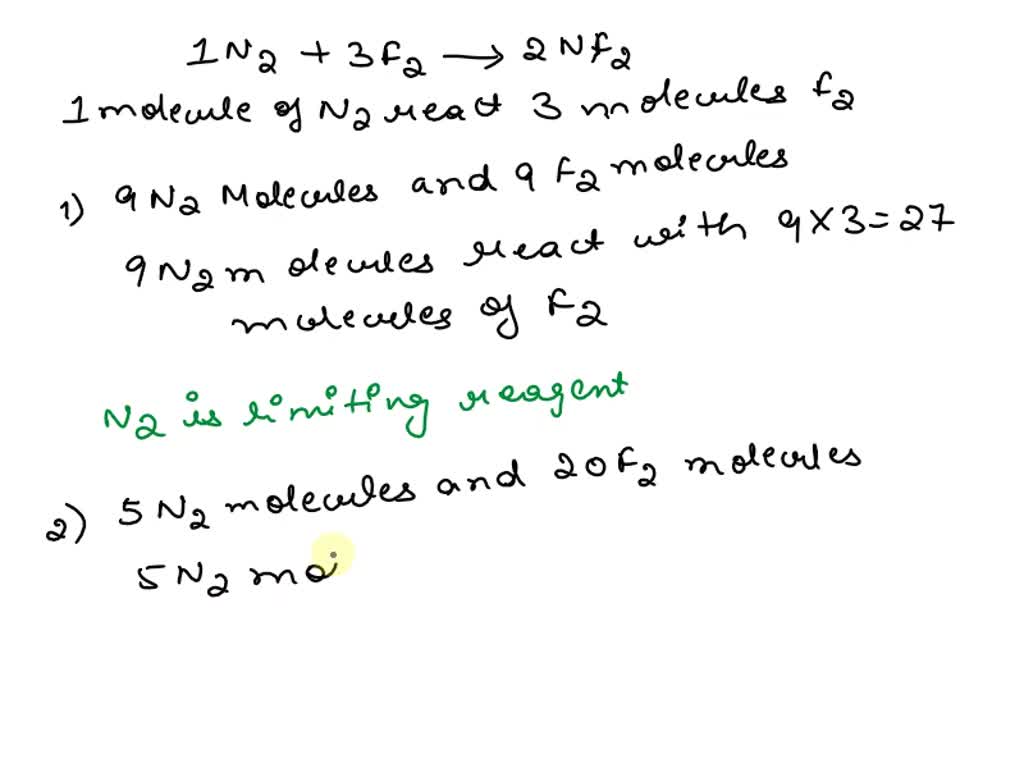 1N2 + 3F2 → 2NF2
1 molecule of N2 react 3 molecules F2
1) 9 N2 Molecules and 9 F2 molecules
9 N2 molecules react with 9×3=27
molecules of F2
N2 is limiting reagent
2) 5 N2 molecules and 20 F2 molecules
5 N2 mo